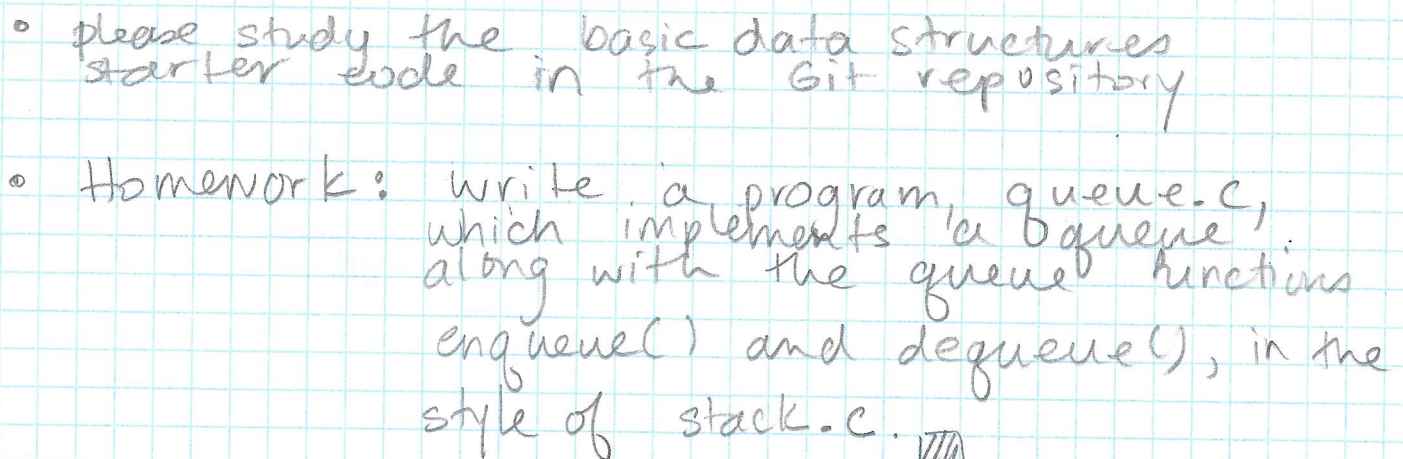 • please study the basic data structures
starter code in the Git repository
• Homework: write a program, queue.c,
which implements a queue,
along with the queue functions
enqueue() and dequeue(), in the
style of stack.c.